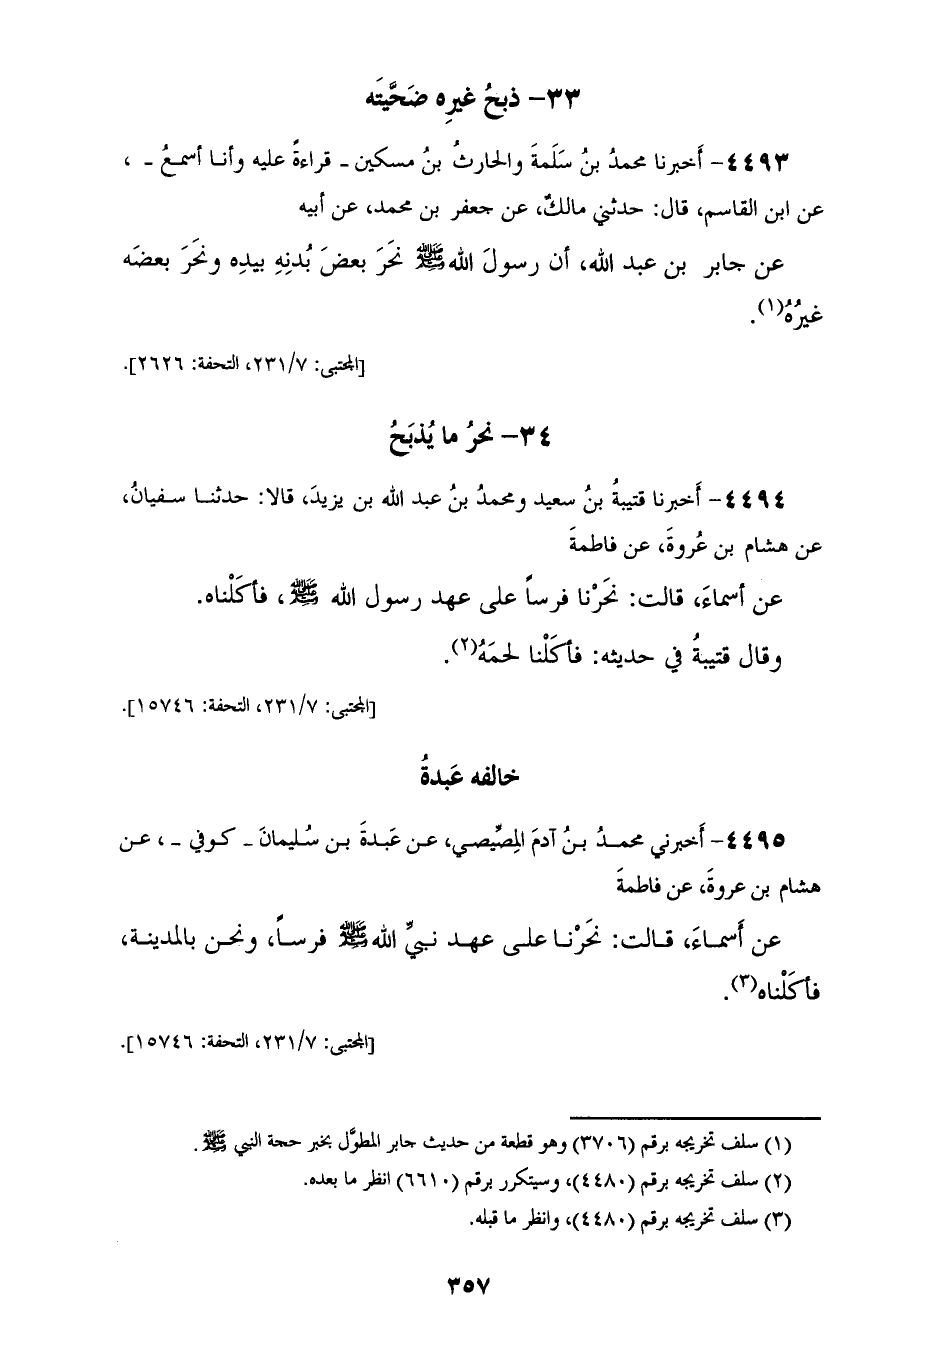 ٣٣- ذبحُ غيرِه ضَحَّيتَه
٤٤٩٣- أَخبرنا محمدُ بنُ سَلَمةَ والحارثُ بنُ مسكين - قراءةً عليه وأنا أسمعُ - ،
عن ابن القاسم، قال: حدثني مالكٌ، عن جعفر بن محمد، عن أبيه
عن جابر بن عبد الله، أن رسولَ الله ﷺ نَحَرَ بعضَ بُدنِهِ بيدِه ونَحَرَ بعضَه
غيرُهُ(١).
[المجتبى: ٢٣١/٧، التحفة: ٢٦٢٦].
٣٤- نحرُ ما يُذبَحُ
٤٤٩٤- أَخبرنا قتيبةُ بنُ سعيد ومحمدُ بنُ عبد الله بن يزيدَ، قالا: حدثنا سفيانُ،
عن هشام بن عُروةَ، عن فاطمةَ
عن أسماءَ، قالت: نَحَرْنا فرساً على عهد رسول الله ﷺ ، فأكَلْناه.
وقال قتيبةُ في حديثه: فأكَلْنا لحمَهُ(٢).
[المجتبى: ٢٣١/٧، التحفة: ١٥٧٤٦].
خالفه عَبدةُ
٤٤٩٥- أَخبرني محمدُ بنُ آدمَ المِصِّيصي، عن عَبدةَ بن سُليمانَ - كوفي - ، عن
هشام بن عروةَ، عن فاطمةَ
عن أَسماءَ، قالت: نَحَرْنا على عهد نبيِّ الله ﷺ فرساً، ونحن بالمدينة،
فأكَلْناه(٣).
[المجتبى: ٢٣١/٧، التحفة: ١٥٧٤٦].
(١) سلف تخريجه برقم (٣٧٠٦) وهو قطعة من حديث جابر المطوَّل بخبر حجة النبي ﷺ .
(٢) سلف تخريجه برقم (٤٤٨٠)، وسيتكرر برقم (٦٦١٠) انظر ما بعده.
(٣) سلف تخريجه برقم (٤٤٨٠)، وانظر ما قبله.
٣٥٧